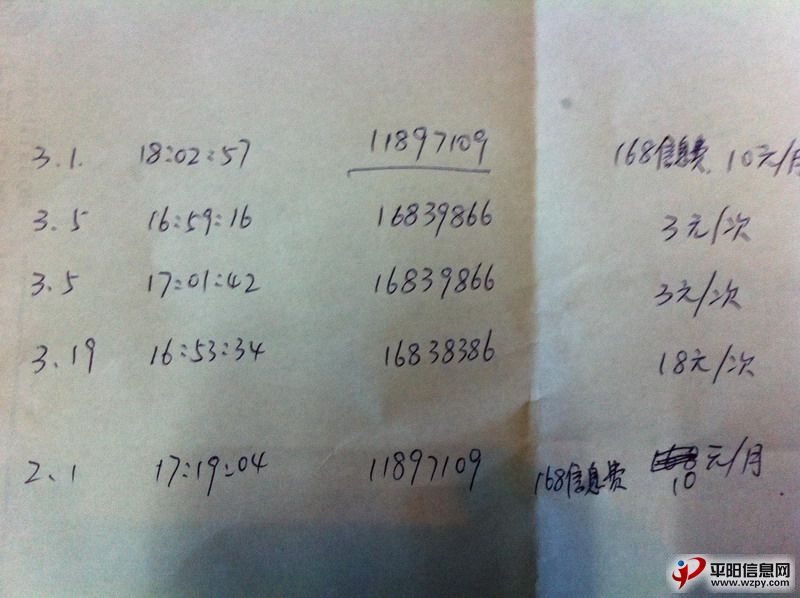 3.1. 18:02:57 11897109 168信息费 10元/月
3.5 16:59:16 16839866 3元/次
3.5 17:01:42 16839866 3元/次
3.19 16:53:34 16838386 18元/次
2.1 17:19:04 11897109 168信息费 10元/月
平阳信息网
www.wzpy.com